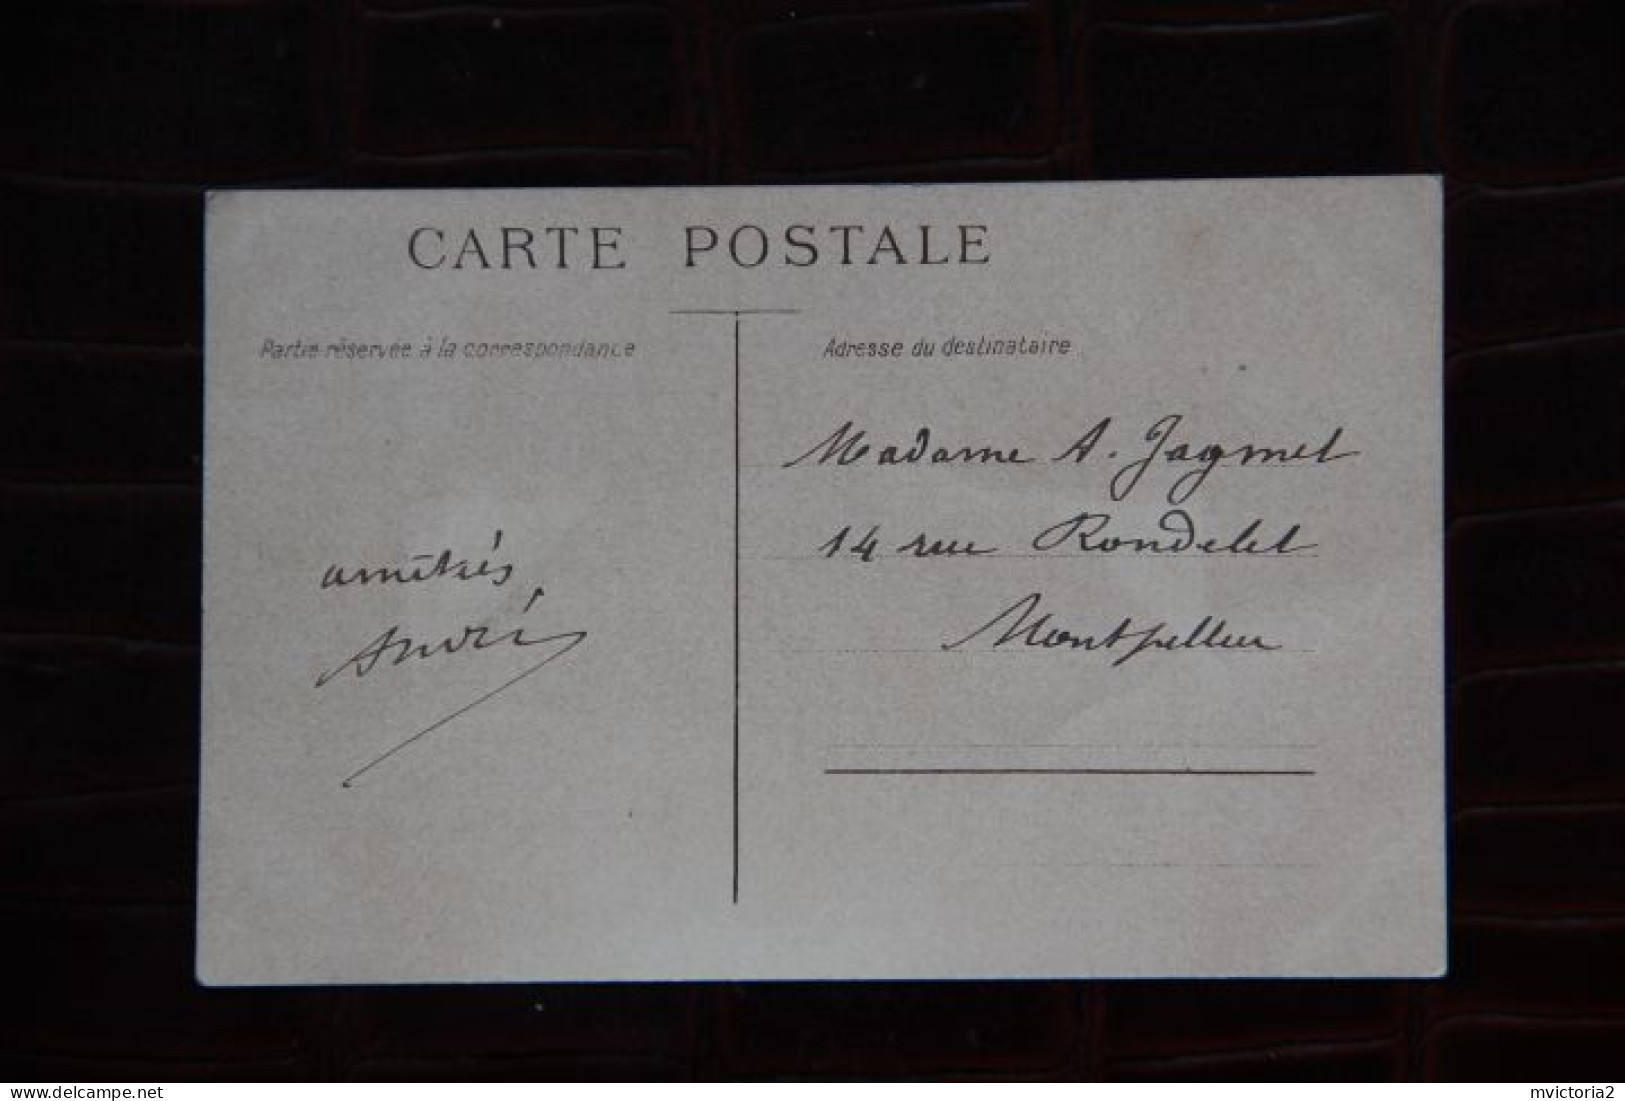 CARTE POSTALE
Partie réservée à la correspondance
Adresse du destinataire
amitiés
André
Madame A. Jagmet
14 rue Rondelet
Montpellier
delcampe.net
mvictoria2